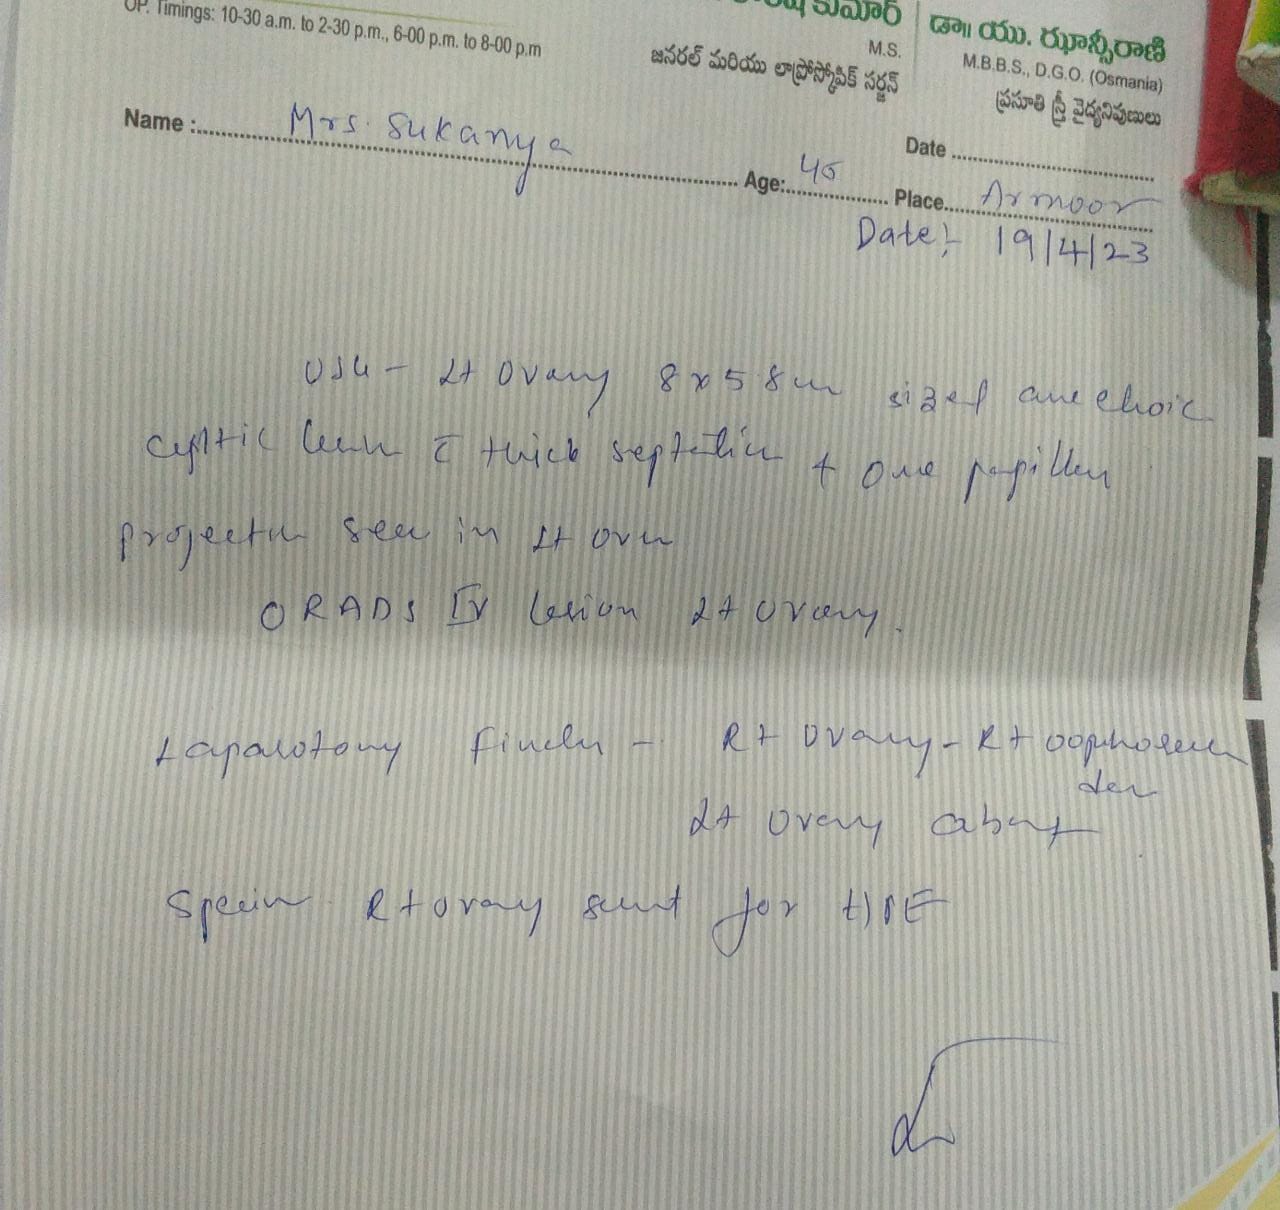 OP. Timings: 10-30 a.m. to 2-30 p.m., 6-00 p.m. to 8-00 p.m
కుమార్
M.S.
జనరల్ మరియు లాప్రోస్కోపిక్ సర్జన్
డా॥ యు. ఝాన్సీరాణి
M.B.B.S., D.G.O. (Osmania)
ప్రసూతి స్త్రీ వైద్యనిపుణులు
Name : Mrs. Sukanya
Age: 45
Date
Place Armoor
Date:- 19/4/23
USG - Lt Ovary 8x5.8cm sized anechoic
cystic lesion c̄ thick septation + one papillary
projection seen in Lt ovary
ORADS IV lesion Lt ovary.
Laparotomy finding - Rt ovary - Rt oophorectomy
Lt ovary absent
Specimen Rt ovary sent for HPE